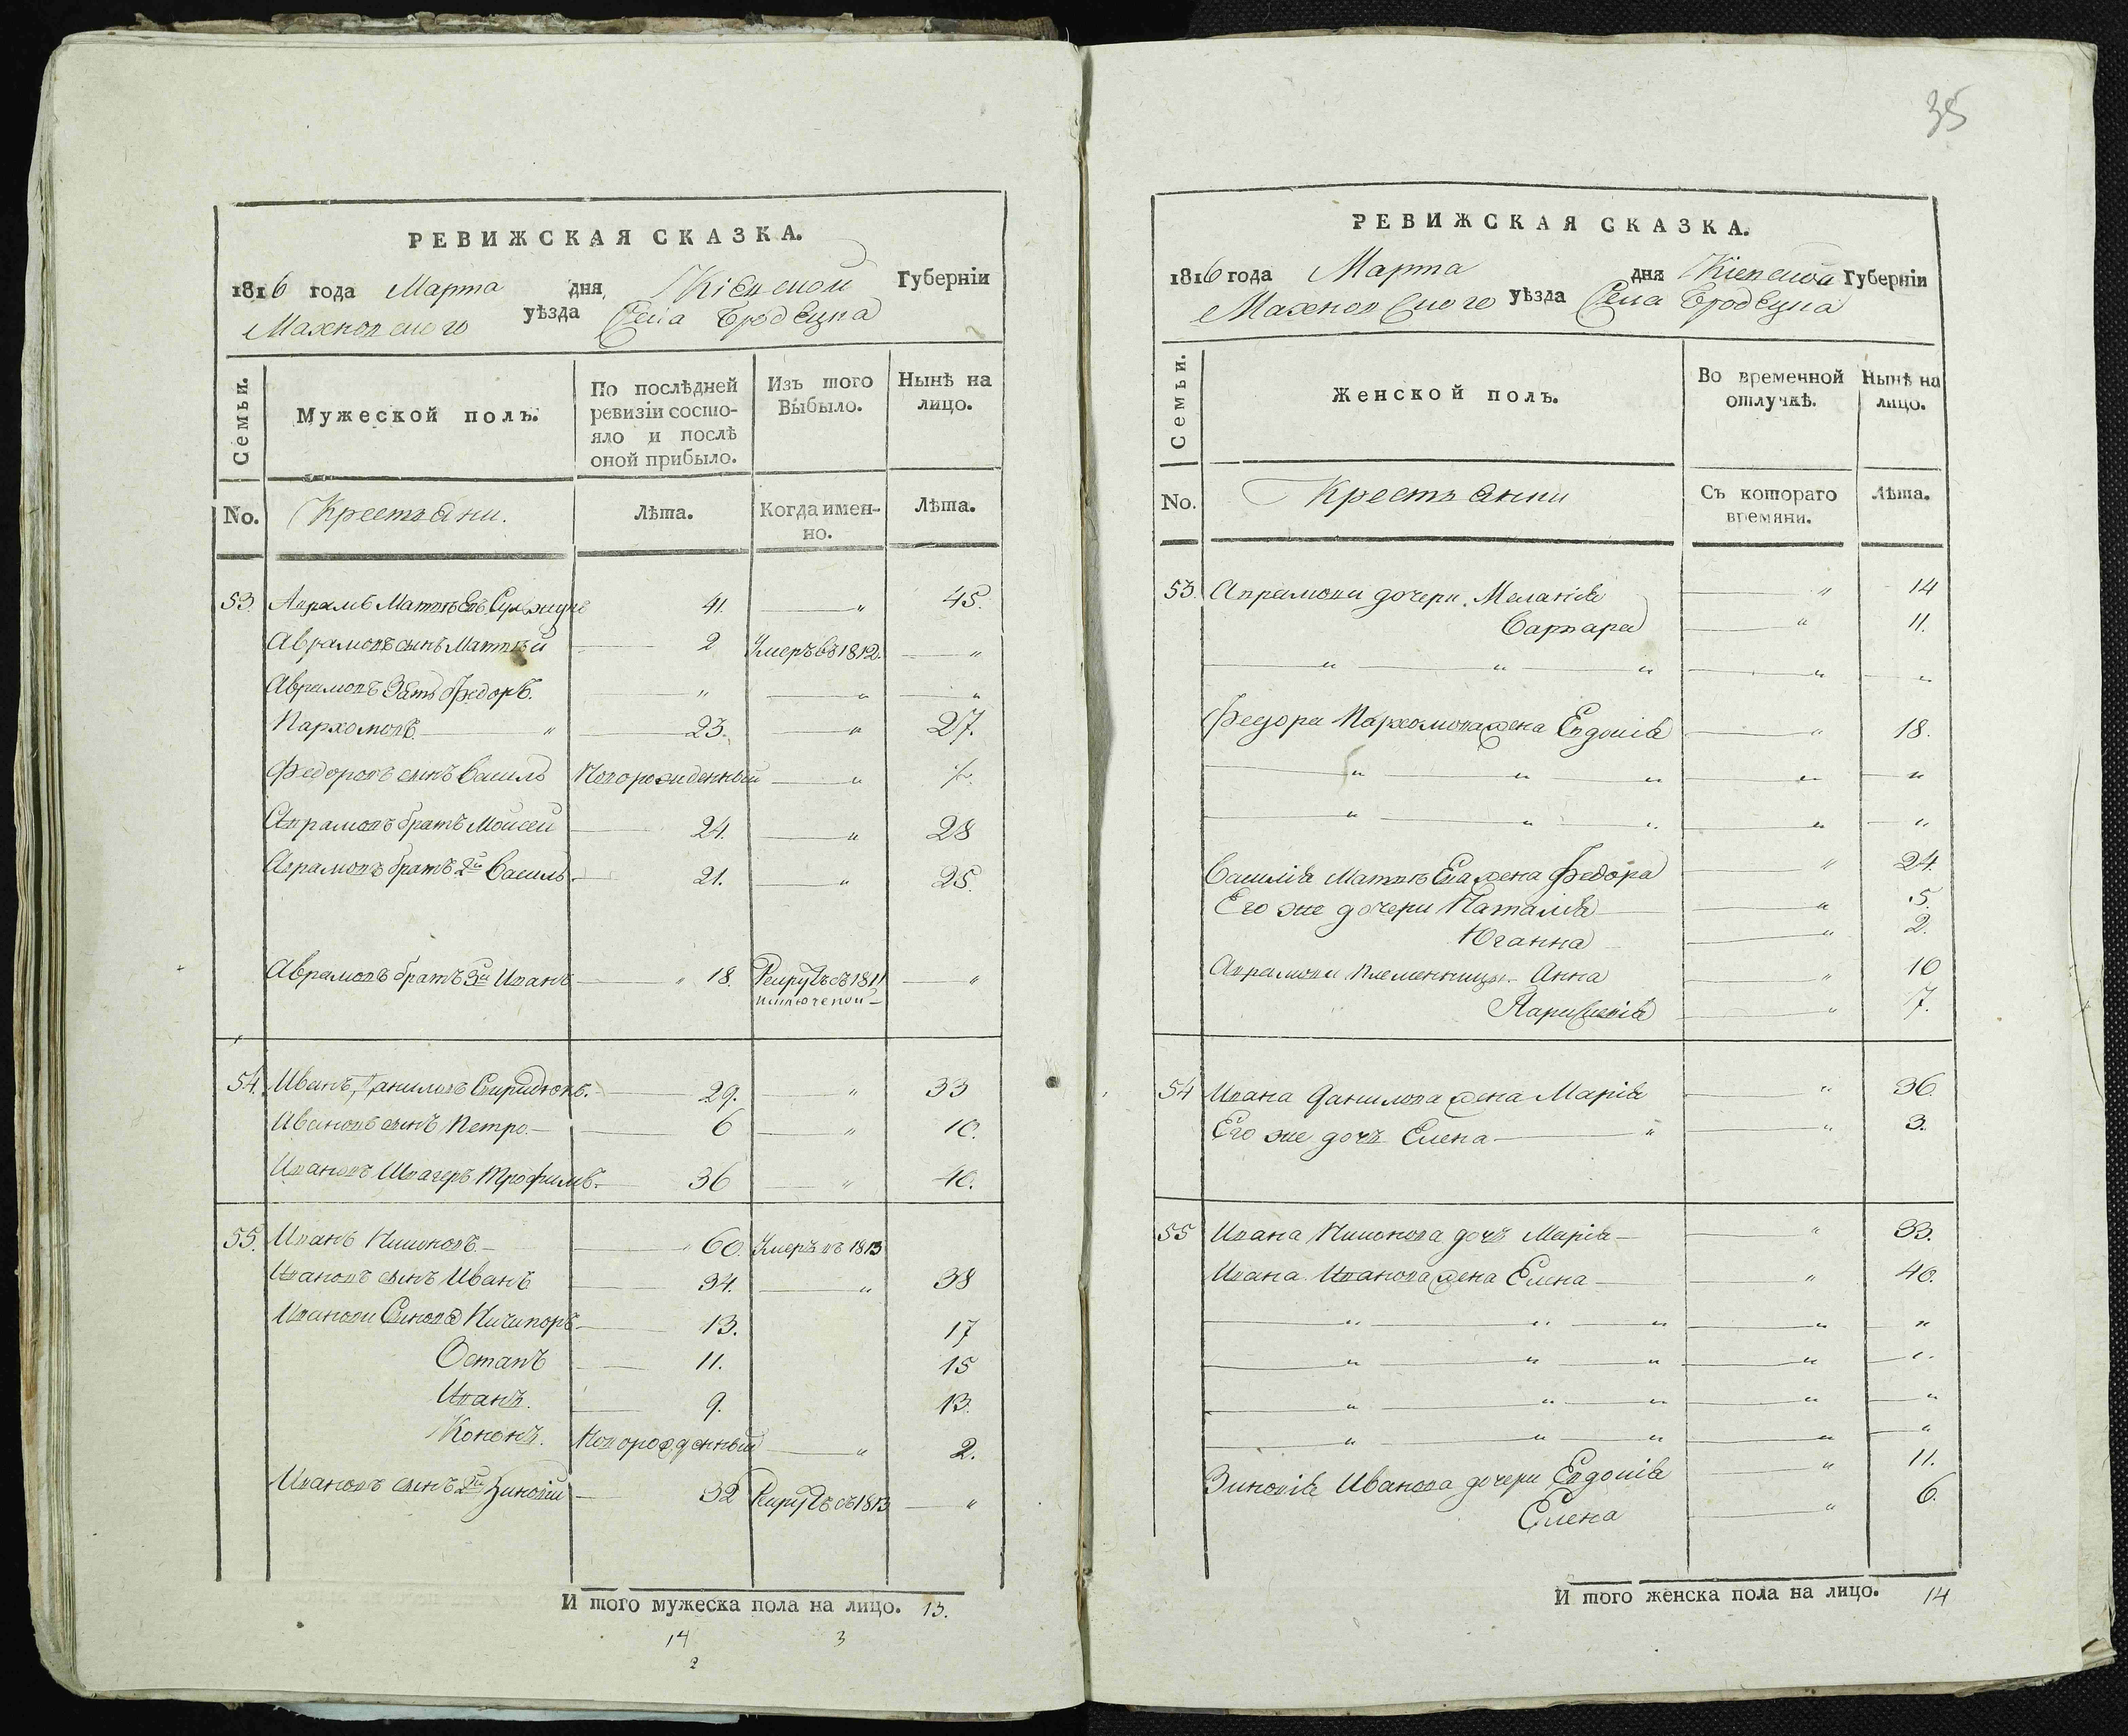 РЕВИЖСКАЯ СКАЗКА.
1816 года Марта дня Кіевской Губерніи
Махновского уѣзда Села Бродецка
Семьи.
Мужеской полъ.
По послѣдней
ревизіи состо-
яло и послѣ
оной прибыло.
Изъ того
Выбыло.
Нынѣ на
лицо.
No. Крестьяни. Лѣта. Когда имен- Лѣта.
но.
53. Аврамъ Матвѣевъ 41. — „ 45.
Аврамовъ сынъ Матвѣй — 2 Умеръ въ 1812. — „
Аврамовъ Зять Федоръ. — „ — „ — „
Пархомовъ — „ — 23. — „ 27.
Федоровъ сынъ Василь Новорожденный — „
Аврамовъ братъ Моисей — 24. — „ 28
Аврамовъ братъ 2й Василь — 21. — „ 25.
Аврамовъ братъ 3й Иванъ — „ 18. Рекрутъ съ 1811 — „
54. Иванъ Даниловъ Спиридюкъ. — 29. — „ 33
Ивановъ сынъ Петро — 6 — „ 10.
Ивановъ Швагеръ Трофимъ. — 36 — „ 40.
55. Иванъ — „ 60. Умеръ въ 1813
Ивановъ сынъ Иванъ — 34. — „ 38
Иванови Синовя Ничипоръ — 13. 17
Остапъ — 11. 15
Иванъ. — 9. 13.
Кононъ. Новорожденный — „ 2.
Ивановъ сынъ 2й Зиновій — 32 Рекрутъ съ 1813 — „
И того мужеска пола на лицо. 13.
14 3
2
35
РЕВИЖСКАЯ СКАЗКА.
1816 года Марта дня Кіевской Губерніи
Махновского уѣзда Села Бродецка
Семьи.
Женской полъ.
Во временной
отлучкѣ.
Нынѣ на
лицо.
No. Крестьянки Съ котораго Лѣта.
времяни.
53. Аврамови дочери Меланія — „ 14
Варвара — „ 11.
— „ — „ — „ — „ — „
Федора Пархомова жена Евдокія — „ 18.
— „ — „ — „ — „ — „
— „ — „ — „ — „ — „
Василія Матвѣева жена Федора — „ 24.
Его же дочери Наталія — „ 5.
Юганна — „ 2.
Аврамови племенницы Анна — „ 10
— „ 7.
54 Ивана Данилова жена Марія „ 36
Его же дочь Елена — „ — „ 3.
55 Ивана дочь Марія — — „ 33.
Ивана Иванова жена Елена — — „ 40.
— „ — „ — „ — „ „
— „ — „ — „ — „ — „
— „ — „ — „ — „ — „
— „ — „ — „ — „ — „
Зиновія Иванова дочери Евдокія — „ 11.
Елена — „ 6.
И того женска пола на лицо. 14